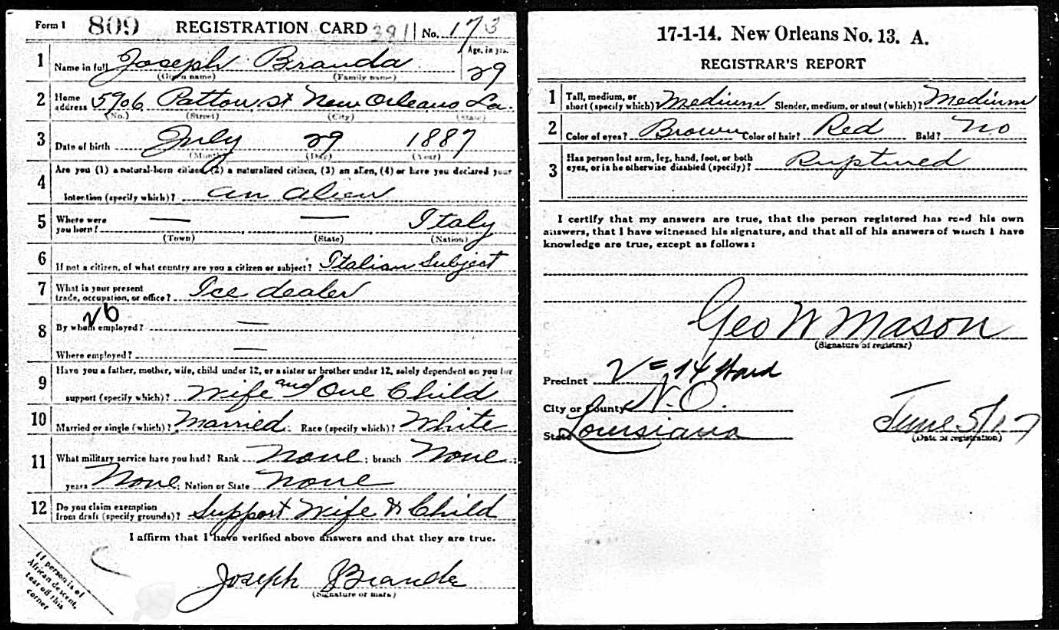 Form 1 809 REGISTRATION CARD 3911 No. 173
1 Name in full Joseph Branda Age, in yrs. 29
(Given name) (Family name)
2 Home address 5906 Patton St New Orleans La.
(No.) (Street) (City) (State)
3 Date of birth July 29 1887
(Month) (Day) (Year)
Are you (1) a natural-born citizen, (2) a naturalized citizen, (3) an alien, (4) or have you declared your
4 intention (specify which)? an alien
5 Where were you born? — — Italy
(Town) (State) (Nation)
6 If not a citizen, of what country are you a citizen or subject? Italian Subject
7 What is your present trade, occupation, or office? Ice dealer
26
8 By whom employed? —
Where employed? —
9 Have you a father, mother, wife, child under 12, or a sister or brother under 12, solely dependent on you for
support (specify which)? Wife and One Child
10 Married or single (which)? Married. Race (specify which)? White
11 What military service have you had? Rank None; branch None;
years None; Nation or State None
12 Do you claim exemption from draft (specify grounds)? Support Wife & Child
I affirm that I have verified above answers and that they are true.
Joseph Brande
(Signature or mark)
If person is of
African descent,
tear off this
corner
17-1-14. New Orleans No. 13. A.
REGISTRAR'S REPORT
1 Tall, medium, or short (specify which)? Medium Slender, medium, or stout (which)? Medium
2 Color of eyes? Brown Color of hair? Red Bald? No
3 Has person lost arm, leg, hand, foot, or both eyes, or is he otherwise disabled (specify)? Ruptured
I certify that my answers are true, that the person registered has read his own
answers, that I have witnessed his signature, and that all of his answers of which I have
knowledge are true, except as follows:
Geo W Mason
(Signature of registrar)
Precinct 2 = 14 Ward
City or County N.O.
State Louisiana
June 5/17
(Date of registration)